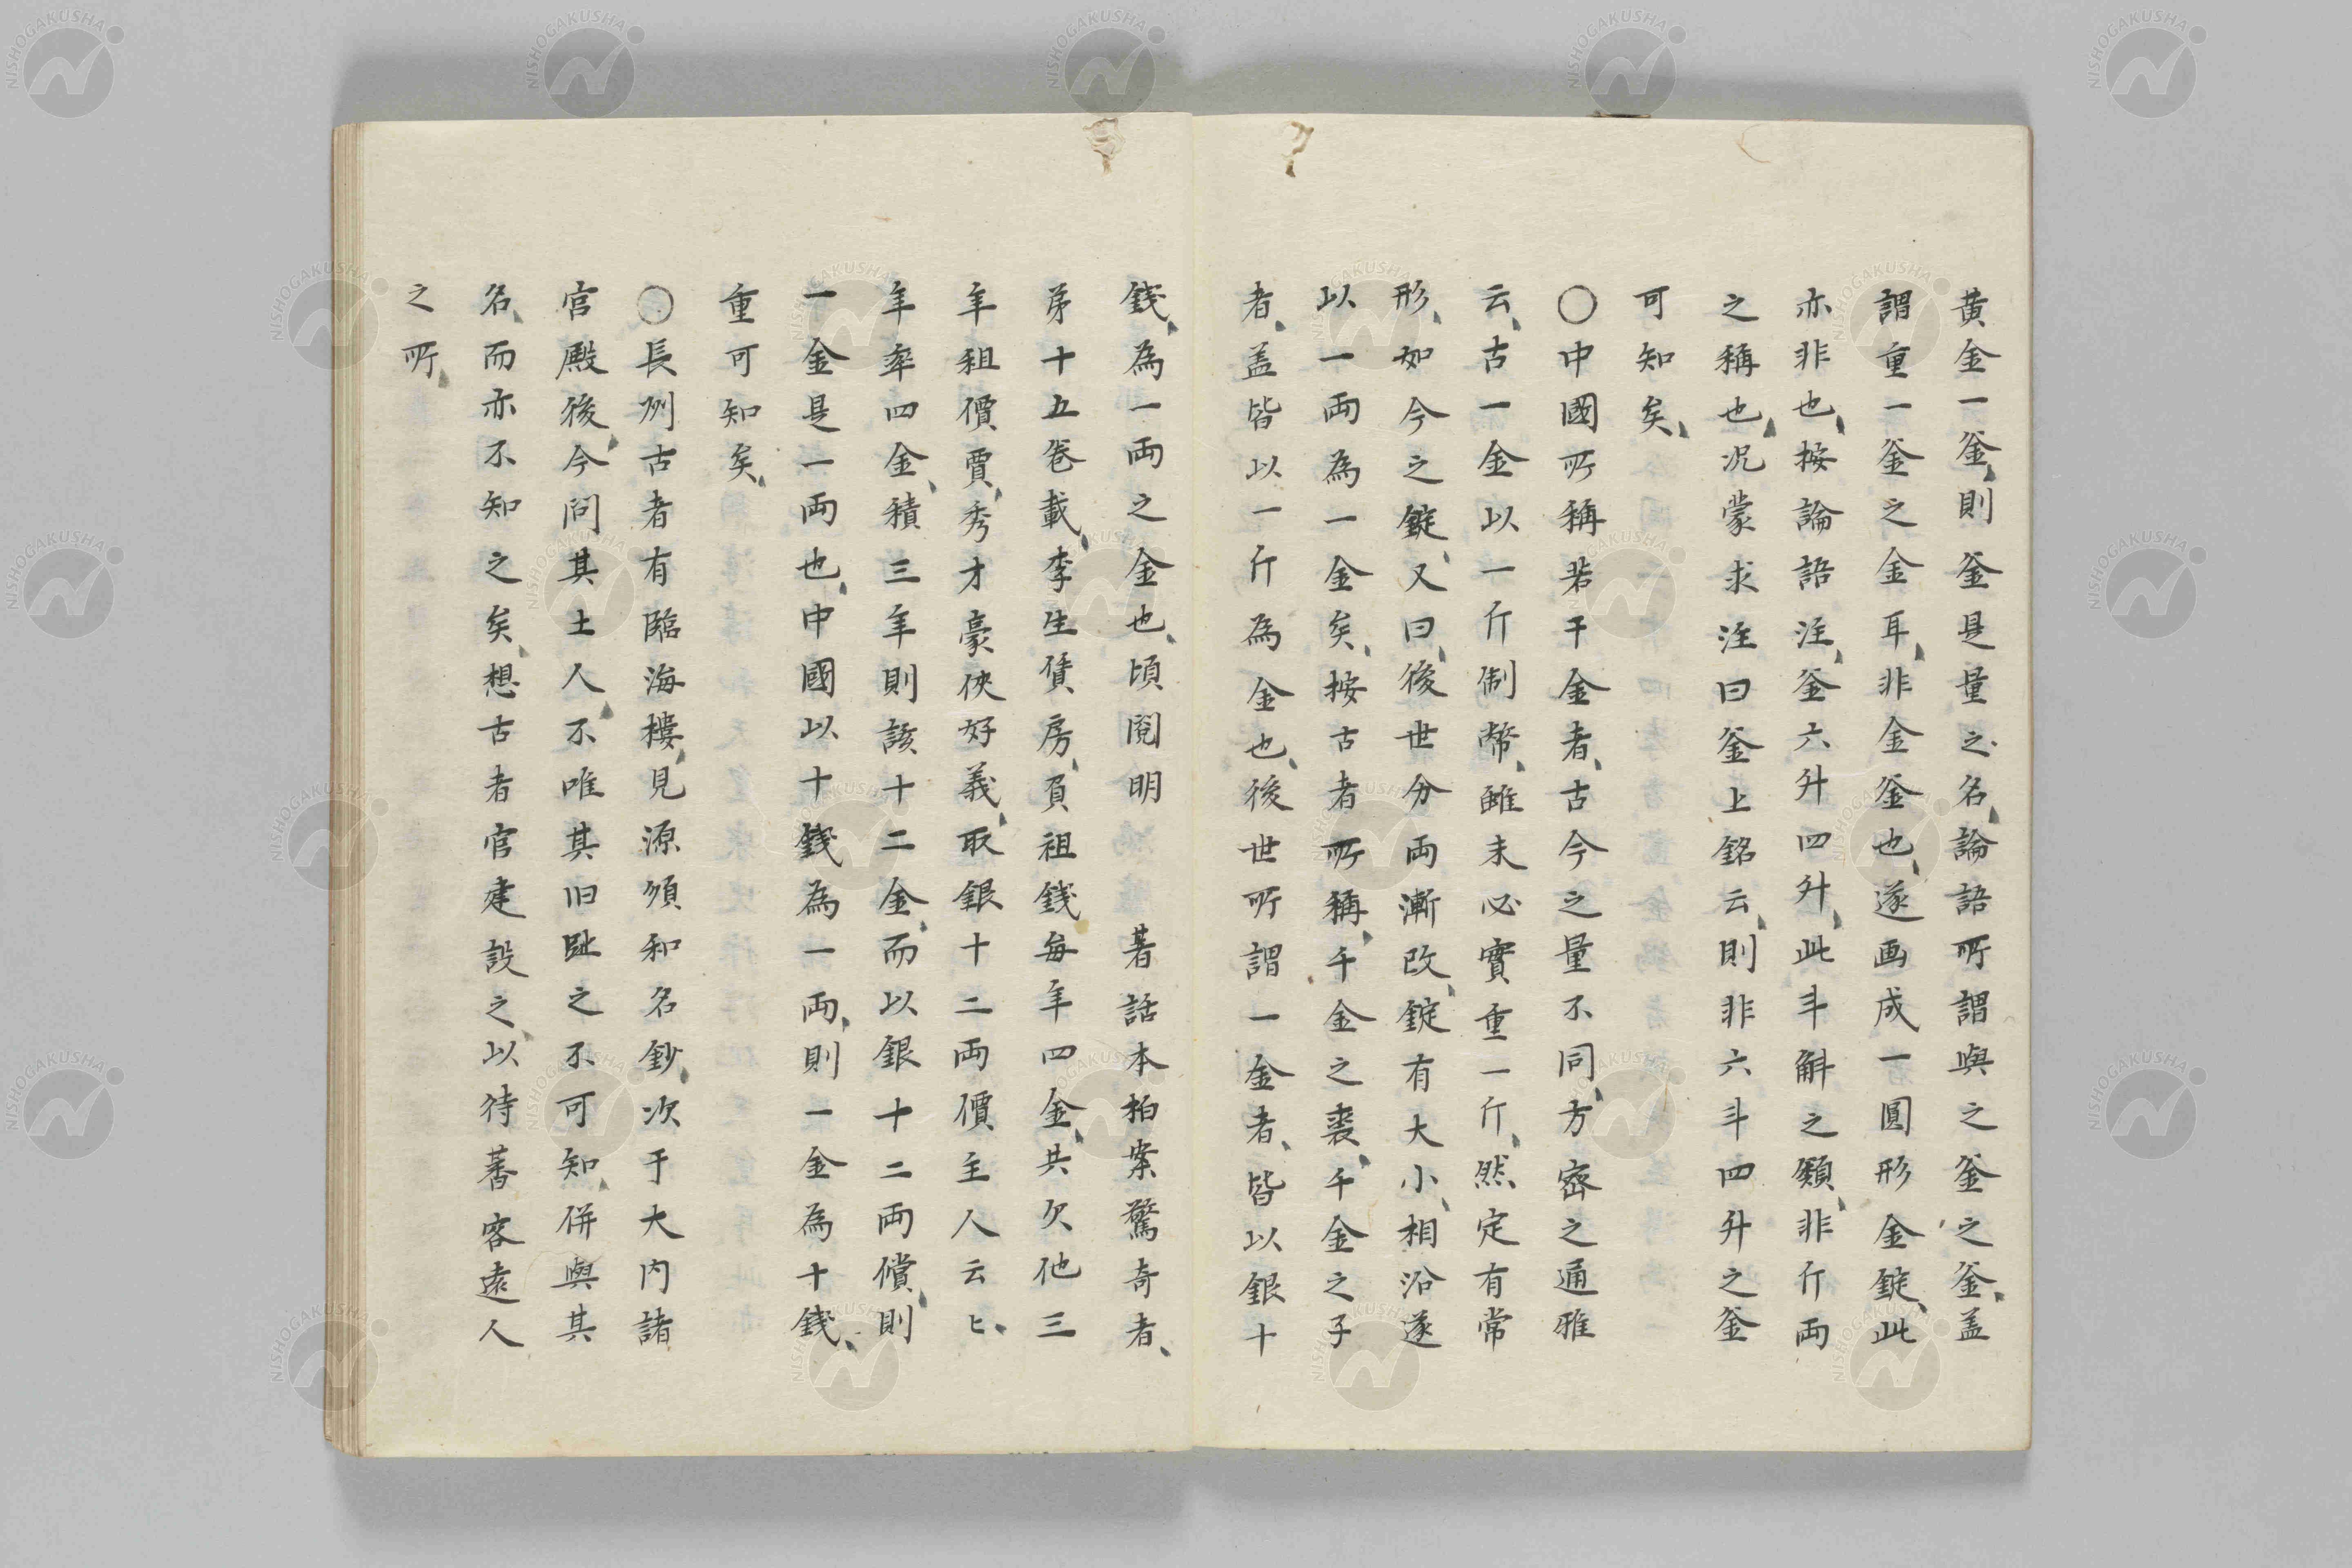 黄金一釜、則釜是量之名、論語所謂與之釜之釜、盖
謂重一釜之金耳、非金釜也、遂画成一圓形金錠、此
亦非也、按論語注、釜六升四升、此斗斛之類、非斤両
之稱也、况蒙求注曰釜上銘云、則非六斗四升之釜
可知矣、
〇中國所稱若干金者、古今之量不同、方密之通雅
云、古一金以一斤制幣、雖未必實重一斤、然定有常
形、如今之錠、又曰、後世分両漸改、錠有大小、相沿遂
以一両為一金矣、按古者所稱、千金之裘、千金之子
者、盖皆以一斤為金也、後世所謂一金者、皆以銀十
錢、為一両之金也、頃閲明 著話本拍案驚奇者、
弟十五卷載、李生賃房、負租錢毎年四金、共欠他三
年租價賈、秀才豪俠好義、取銀十二両價主人云〻、
年率四金、積三年則該十二金、而以銀十二両償、則
一金是一両也、中國以十錢為一両、則一金為十錢、
重可知矣、
〇長州古者有臨海樓、見源順和名鈔、次于大内諸
宮殿後、今問其土人、不唯其旧趾之不可知、併與其
名、而亦不知之矣、想古者官建設之、以待蕃客遠人
之所、
NISHOGAKUSHA